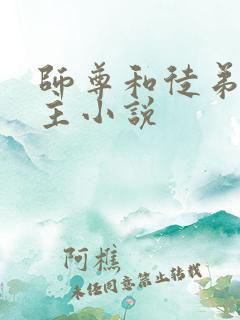 師尊和徒弟
主小說
阿樵
未经同意禁止转载